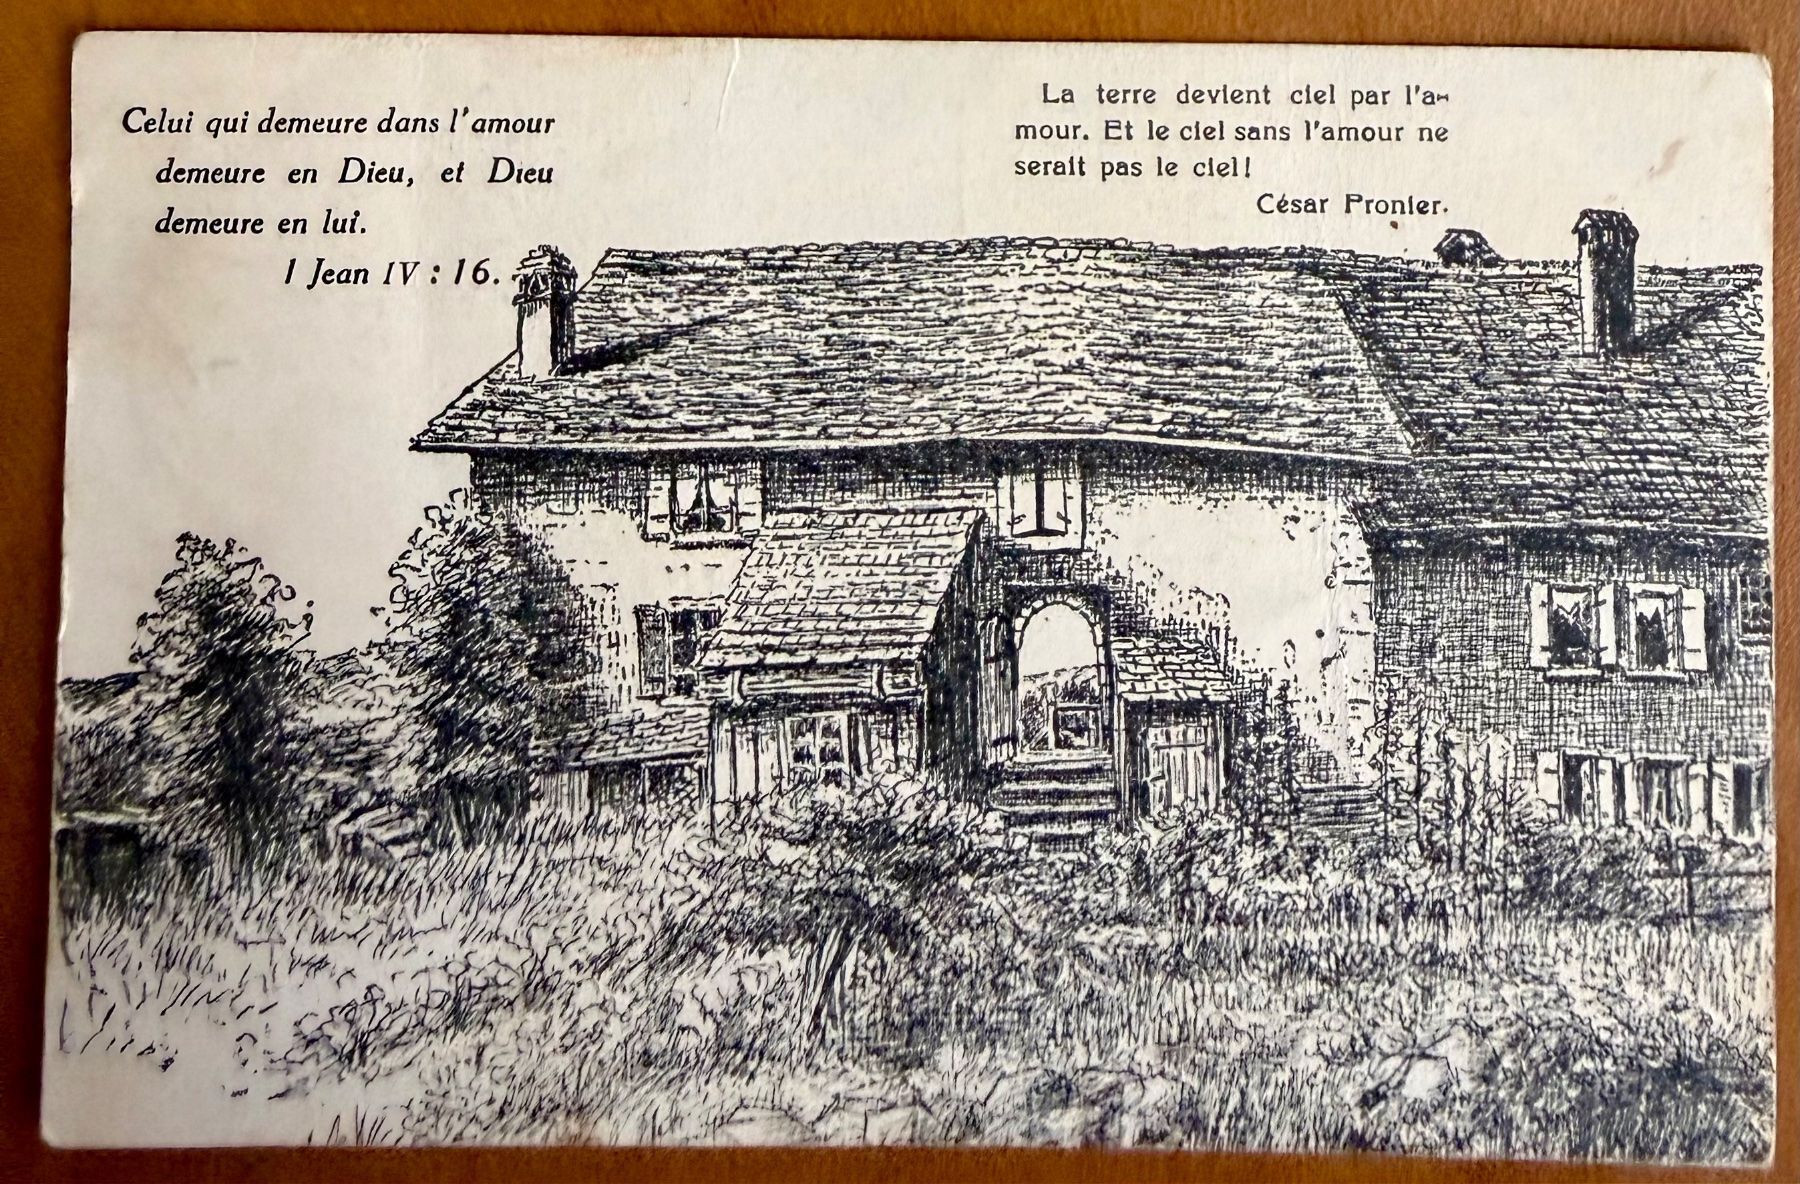 Celui qui demeure dans l'amour
demeure en Dieu, et Dieu
demeure en lui.
1 Jean IV : 16.
La terre devient ciel par l'a-
mour. Et le ciel sans l'amour ne
serait pas le ciel!
César Pronier.